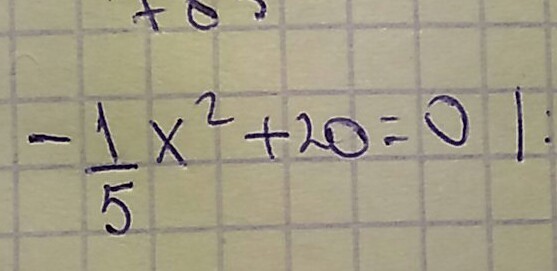 -1/5 x² + 20 = 0 | :